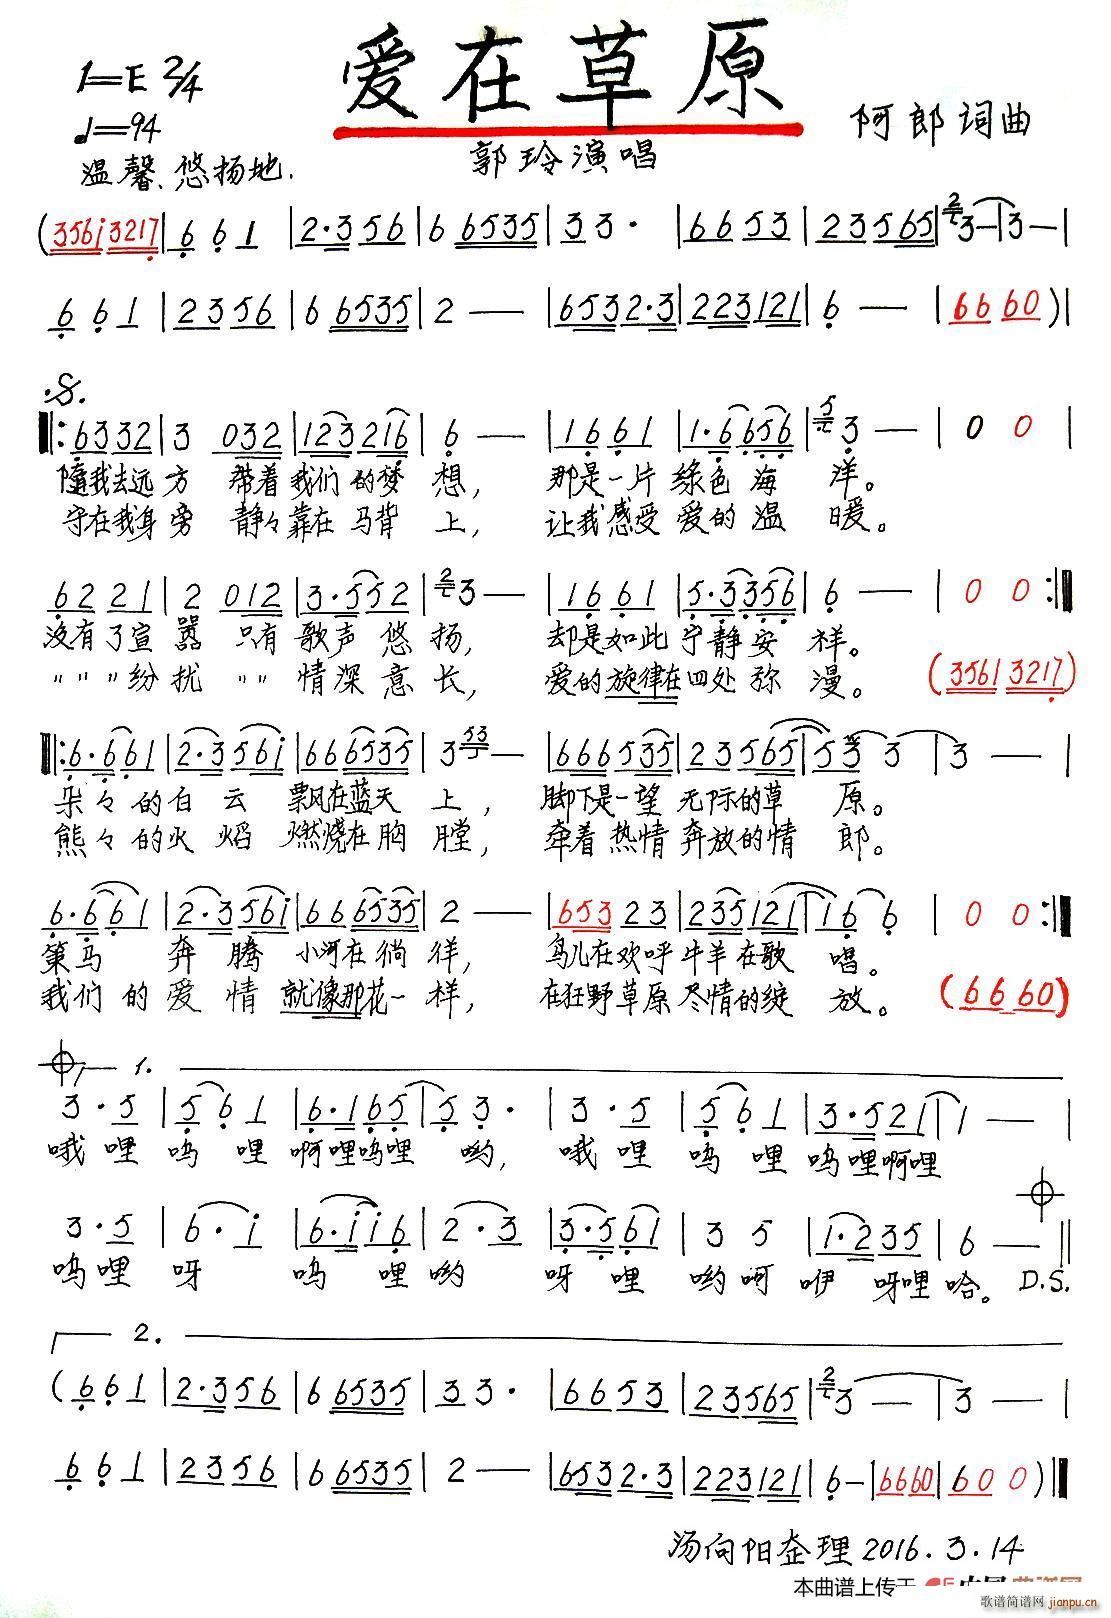 爱在草原
1=E 2/4
♩=94
温馨、悠扬地.
郭玲演唱
阿郎词曲
(356i 3217|6 6 1|2·3 56|6 6535|3 3·|66 53|23 565|2 3—|3—|
6 6 1|23 56|6 6535|2 —|6532·3|223121|6 —|66 60)|
𝄋
‖:63 32|3 032|123 216|6 —|16 61|1·6 656|5 3 —|0 0|
随我去远方 带着我们的梦想, 那是一片绿色海洋。
守在我身旁 静々靠在马背上, 让我感受爱的温暖。
62 21|2 012|3·5 52|2 3—|16 61|5·3 356|6 —|0 0:‖
没有了宣嚣 只有歌声悠扬, 却是如此宁静安祥。
〃〃〃纷扰 〃〃情深意长, 爱的旋律在四处弥漫。 (3561 3217)
‖:6·6 61|2·3 56i|66 6535|3 53 —|66 653|23 565|5 3 3|3 —|
朵々的白云 飘在蓝天上, 脚下是一望无际的草原。
熊々的火焰 燃烧在胸膛, 牵着热情奔放的情郎。
6·6 61|2·3 56i|66 6535|2 —|653 23|235 121|1 6 6|0 0:‖
策马奔腾 小河在徜徉, 鸟儿在欢呼牛羊在歌唱。
我们的爱情 就像那花一样, 在狂野草原尽情的绽放。 (66 60)
1.
3·5|5 6 1|6·1 65|5 3·|3·5|5 6 1|3·5 21|1 —|
哦哩呜哩啊哩呜哩哟, 哦哩呜哩呜哩啊哩
3·5|6·i|6·i i6|2·3|3·5 61|3 5|1·2 35|6 —‖
呜哩呀 呜哩哟 呀哩哟呵咿呀哩哈。 D.S.
2.
(6 6 1|2·3 56|6 6535|3 3·|66 53|23 565|2 3 —|3 —|
6 6 1|23 56|6 6535|2 —|6532·3|223121|6 —|6660|60 0)‖
汤向阳整理2016.3.14
本曲谱上传于
歌谱简谱网
jianpu.cn